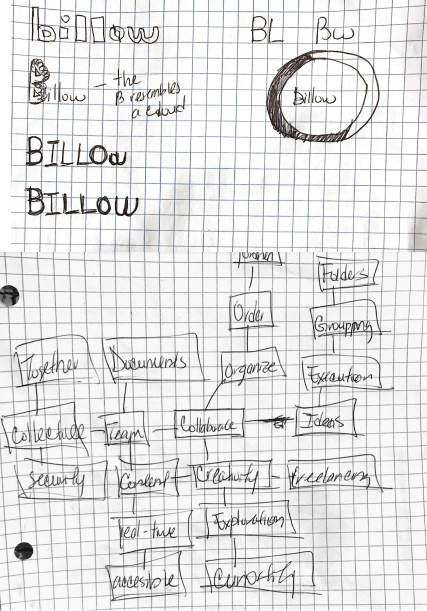 billow
BL BW
Billow - the
B resembles
a cloud
Billow
BILLOW
BILLOW
Folders
Order
Groupping
Together
Documents
Organize
Execution
Collective
Team
Collaborate
Ideas
Security
Content
Creativity
Freelancing
real-time
Exploration
accesible
Curiosity